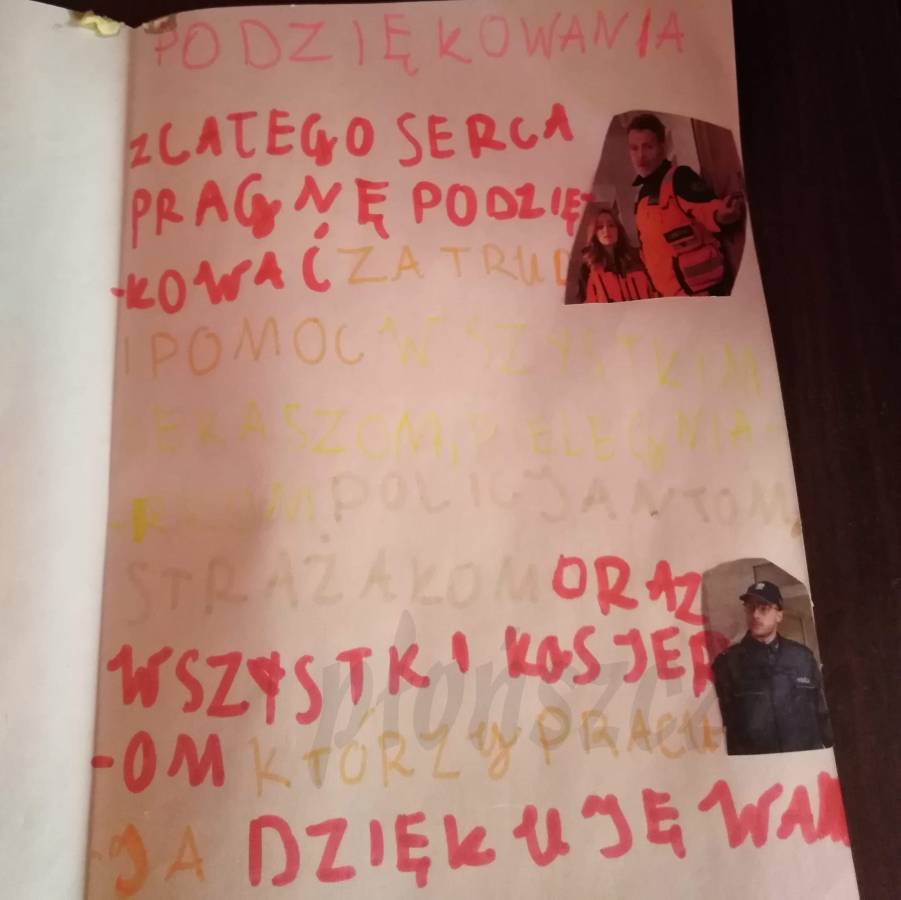 PODZIĘKOWANIA
ZCAŁEGO SERCA
PRAGNĘ PODZIĘ-
-KOWAĆ ZA TRUD
I POMOC WSZYSTKIM
LEKASZOM, PIELĘGNIA-
-RKOM POLICJANTOM,
STRAŻAKOM ORAZ
WSZYSTKI KASJER
-OM KTÓRZY PRACU-
-JA DZIĘKUJĘ WAM